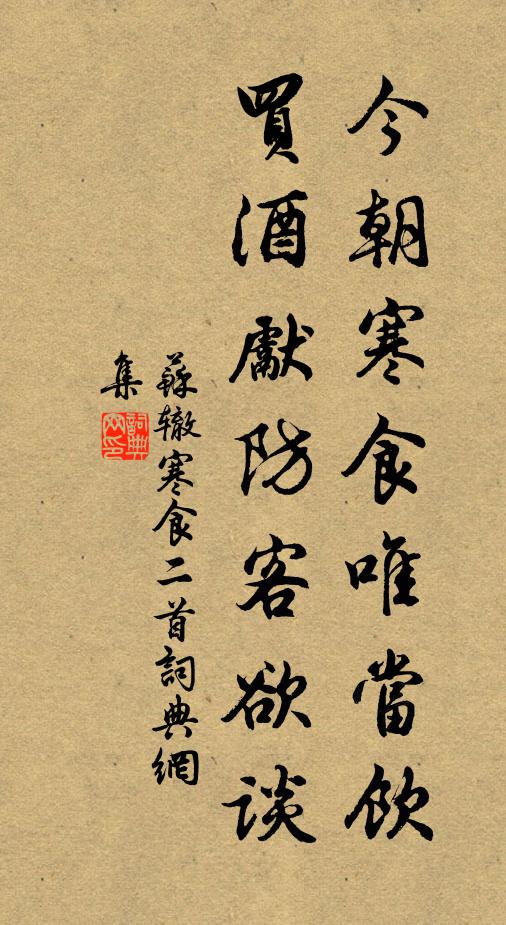 今朝寒食唯當飲
買酒獻防客欲谈
蘇辙寒食二首詞典網
集
詞典網印